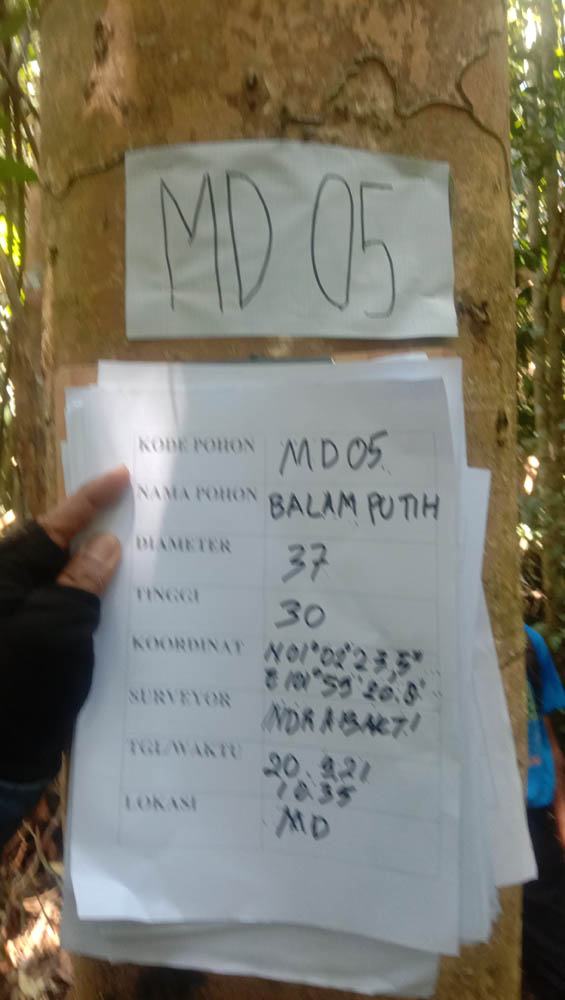 MD 05
KODE POHON MD05
NAMA POHON BALAM PUTIH
DIAMETER 37
TINGGI 30
KOORDINAT N01°02'23,5"
E101°59'20.8"
SURVEYOR INDRABAKTI
TGL/WAKTU 20.9.21
10.35
LOKASI MD